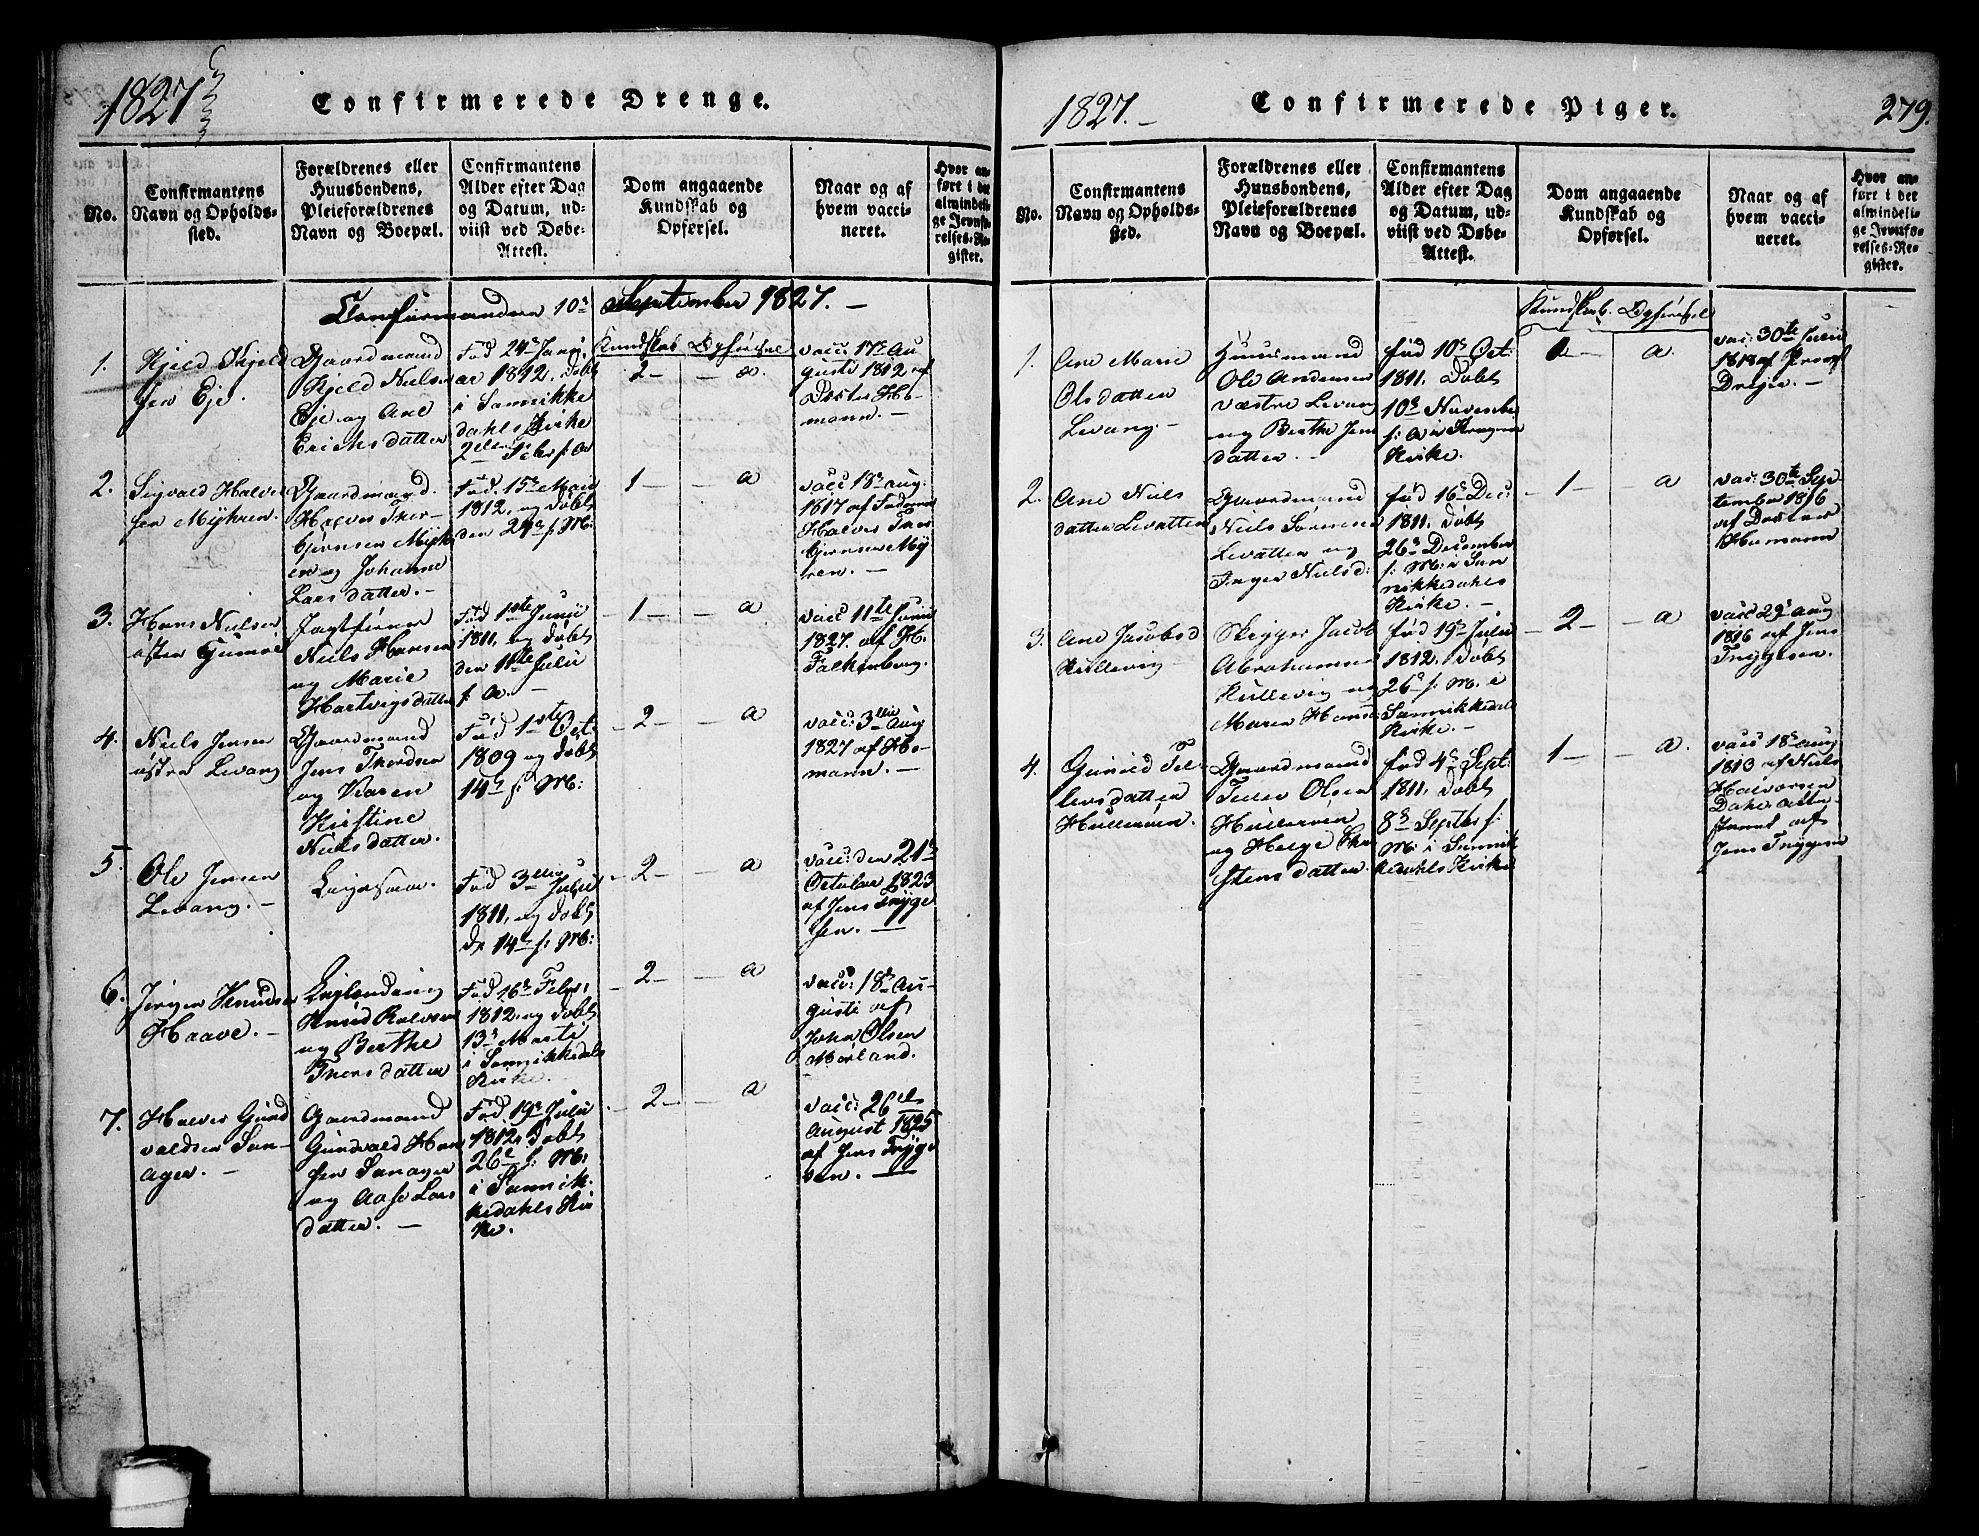 1827
Confirmerede Drenge.
No.
Confirmantens
Navn og Opholds-
sted.
Forældrenes eller
Huusbondens,
Pleieforældrenes
Navn og Boepæl.
Confirmantens
Alder efter Dag
og Datum, ud-
viist ved Døbe-
Attest.
Dom angaaende
Kundskab og
Opførsel.
Naar og af
hvem vacci-
neret.
Hvor an-
ført i det
almindeli-
ge Jevnfø-
relses-Re-
gister.
10de September 1827. –
Kundskab Opførsel
1.
Kjeld Kjeld
sen Eje.
Gaardmand
Kjeld Nielsen
Eje og Ane
Erichsdatter
Fød 24de Janu
ar 1812, døbt
i Sannikke
dahls Kirke
2 – – a.
vacc: 17de Au
gusti 1812 af
Doctor Ho-
mann. –
2.
Sigvald Halvor
sen Myhren.
Gaardmand
Halvor Thor-
bjørnsen Myh
ren og Johanne
Larsdatter. –
Fød. 15de Marti
1812, og døbt
den 24de f: M:
1 – – a
vacc 18de aug:
1817 af
Halvor Thor
bjørnsen My
ren. –
3.
Hans Nielsen
østre Gumøe
Jagtfører
Niels Hansen
og Marie
Hartvigsdatter
Fød 1ste Junii
1811, og døbt
den 11te Julii
f: A. –
1 – – a
vacc 11te Junii
1827. af H.
Falkenberg.
4.
Niels Jensen
østre Levang
Gaardmand
Jens Thordsen
og Karen
Kirstine
Nielsdatter.
Fød 1ste Oct:
1809 og døbt
14de f: M:
2 – – a
vacc: 3die Aug
1827 af Ho-
mann. –
5.
Ole Jensen
Levang. –
Fød 3die Julii
1811, og døbt
d. 14de f: M:
2 – – a
vacc: den 21de
October 1823
af Jens Trÿge
sen. –
6.
Jørgen Knudsen
Haave. –
Knud Halvorsen
og Berthe
Thorsdatter
Fød 16de Febr:
1812, og døbt
13de Marti
i Sannikkedals
Kirke. –
2 – – a
vacc: 18de Au-
gusti af
John Olsen
Mørland.
7.
Halvor Gund
valdsen San-
ager. –
Gaardmand
Gundvald Han
sen Sanager
og Aase Lars
datter. –
Fød. 19de Julii
1812, døbt
26de f: M:
i Sannik-
kedahls Kir
ke.
2 – – a
vacc: 26de
August 1825
af Jens Trÿge
sen. –
1827. –
Confirmerede Piger.
279.
No.
Confirmantens
Navn og Opholds-
sted.
Forældrenes eller
Huusbondens,
Pleieforældrenes
Navn og Boepæl.
Confirmantens
Alder efter Dag
og Datum, ud-
viist ved Døbe-
Attest.
Dom angaaende
Kundskab og
Opførsel.
Naar og af
hvem vacci-
neret.
Hvor an-
ført i det
almindeli-
ge Jevnfø-
relses-Re-
gister.
Kundskab. Opførsel
1.
Ane Marie
Olsdatter
Levang. –
Huusmand
Ole Andersen
væstre Levang
og Berthe Jens
datter. –
fød 10de Oct:
1811, døbt
10de November
f: A i Kragerøe
Kirke.
– a.
vac: 30te Junii
af Provst
Dreyer. –
2.
Ane Niels
datter Levatten
Gaardmand
Niels Sørensen
Levatten og
Inger Nielsd:
fød 16de Dec:
1811, døbt
26de December
f: M: i San
nikkedahls
Kirke. –
1 – – a
vac: 30te Sep
tember 1816
af Doctor
Homann
3.
Ane Jacobsd
Kullevig
Skigger Jacob
Abrahamsen
Kullevig og
Maren Hans:
fød 19de Julii
1812, døbt
26de f: M: i
Sannikkedal
Kirke. –
2 – – a
vacc 29de aug
1816 af Jens
Trygesen.
4.
Gunild Tel
lefsdatter
Gaardmand
Olsen
og Helge
stensdatter
fød 4de Sept:
1811, døbt
8de Septbr f:
M: i Sannik
kedahls Kirke
1 – – a.
vacc 18de aug
1813 af Niels
Halvorsen
Dahl atte-
steret af
Jens Trygesen